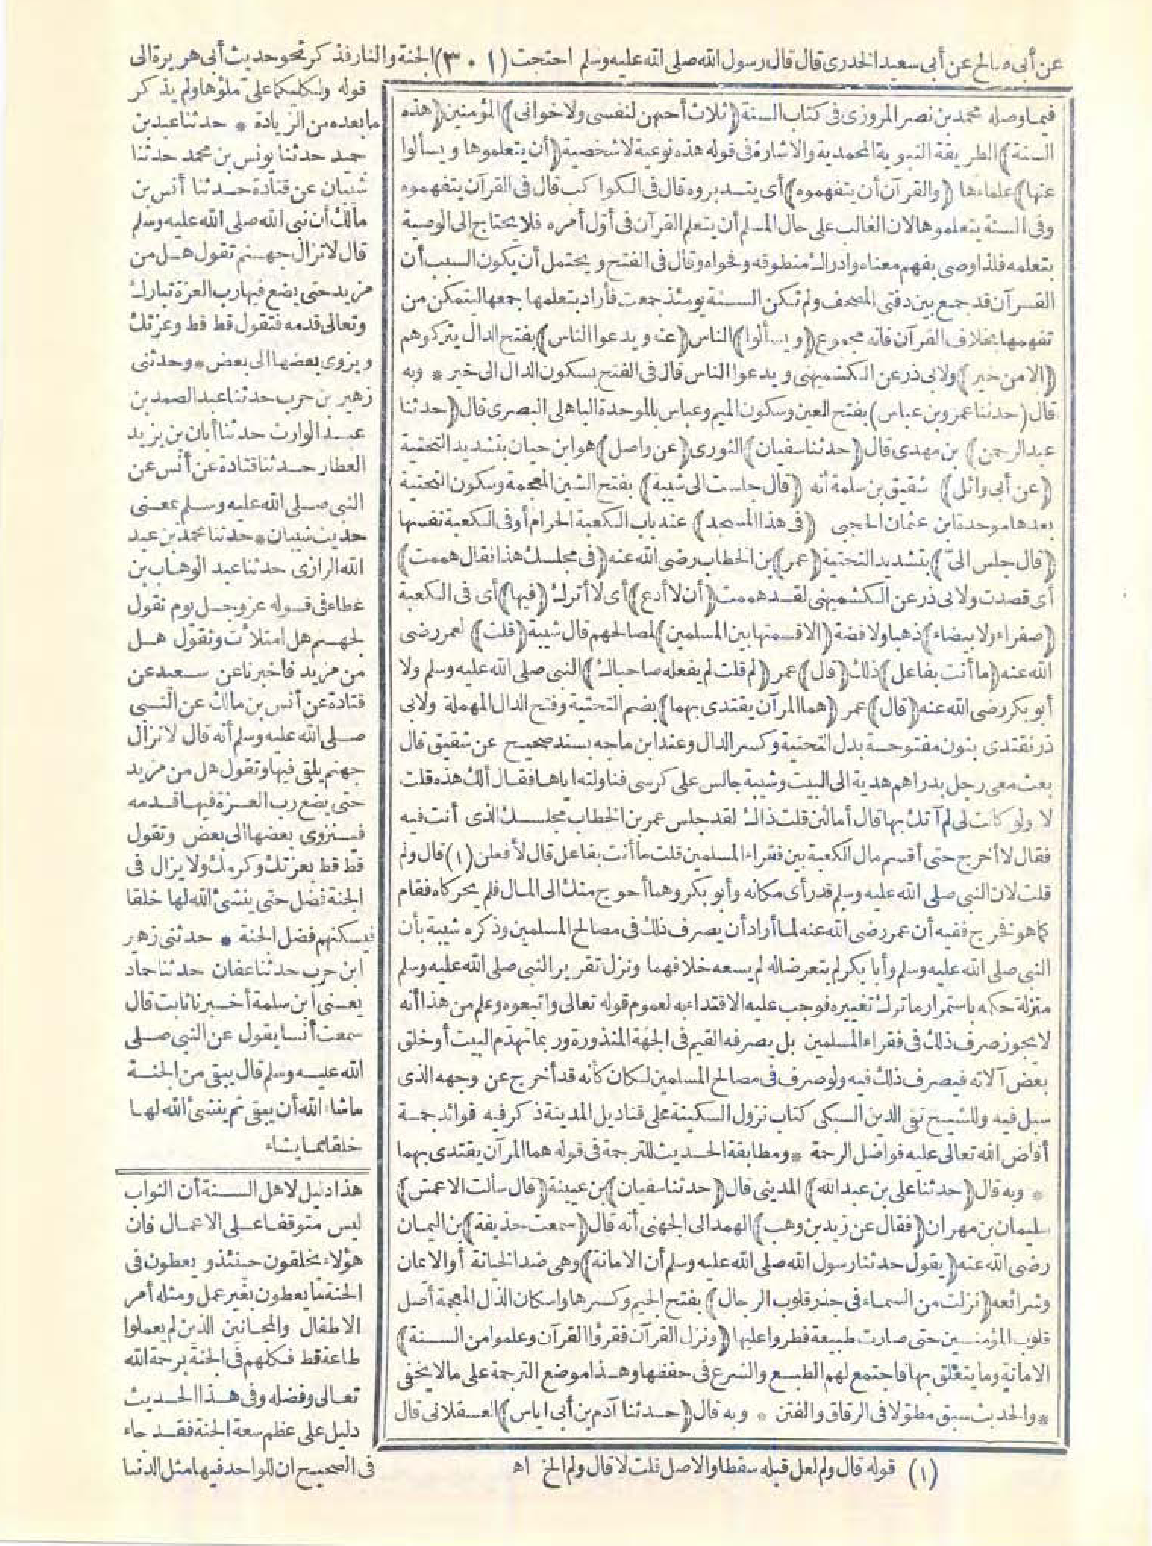 عن أبى صالح عن أبى سعيد الخدرى قال قال رسول الله صلى الله عليه وسلم احتجت (٣٠١) الجنة والنار فذكر نحو حديث أبى هريرة الى
قوله ولكليكما على ملؤها ولم يذكر
ما بعده من الزيادة * حدثنا عبد بن
حميد حدثنا يونس بن محمد حدثنا
شيبان عن قتادة حدثنا أنس بن
مالك أن نبى الله صلى الله عليه وسلم
قال لا تزال جهنم تقول هل من
مزيد حتى يضع فيها رب العزة تبارك
وتعالى قدمه فتقول قط قط وعزتك
ويزوى بعضها الى بعض * وحدثنى
زهير بن حرب حدثنا عبد الصمد بن
عبد الوارث حدثنا أبان بن يزيد
العطار حدثنا قتادة عن أنس عن
النبى صلى الله عليه وسلم بمعنى
حديث شيبان * حدثنا محمد بن عبد
الله الرازى حدثنا عبد الوهاب بن
عطاء فى قوله عز وجل يوم نقول
لجهنم هل امتلأت وتقول هل
من مزيد فأخبرنا عن سعيد عن
قتادة عن أنس بن مالك عن النبى
صلى الله عليه وسلم أنه قال لا تزال
جهنم يلقى فيها وتقول هل من مزيد
حتى يضع رب العزة فيها قدمه
فينزوى بعضها الى بعض وتقول
قط قط بعزتك وكرمك ولا يزال فى
الجنة فضل حتى ينشئ الله لها خلقا
فيسكنهم فضل الجنة * حدثنى زهير
ابن حرب حدثنا عفان حدثنا حماد
يعنى ابن سلمة أخبرنا ثابت قال
سمعت أنسا يقول عن النبى صلى
الله عليه وسلم قال يبقى من الجنة
ماشاء الله أن يبقى ثم ينشئ الله لها
خلقا مما يشاء
هذا دليل لاهل السنة أن الثواب
ليس متوقفا على الاعمال فان
هؤلاء يخلقون حينئذ ويعطون فى
الجنة ما يعطون بغير عمل ومثله أمر
الاطفال والمجانين الذين لم يعملوا
طاعة قط فكلهم فى الجنة برحمة الله
تعالى وفضله وفى هذا الحديث
دليل على عظم سعة الجنة فقد جاء
فى الصحيح ان للواحد فيها مثل الدنيا
فيما وصله محمد بن نصر المروزى فى كتاب السنة (ثلاث أحبهن لنفسى ولاخوانى) المؤمنين (هذه
السنة) الطريقة النبوية المحمدية والاشارة فى قوله هذه نوعية لا شخصية (أن يتعلموها ويسألوا
عنها) علماءها (والقرآن أن يتفهموه) أى يتدبروه قال فى الكواكب قال فى القرآن يتفهموه
وفى السنة يتعلموها لان الغالب على حال المسلم أن يتعلم القرآن فى أول أمره فلا يحتاج الى الوصية
بتعلمه فلذا وصى بفهم معناه وادراك منطوقه وفحواه وقال فى الفتح ويحتمل أن يكون السبب أن
القرآن قد جمع بين دفتى المصحف ولم تكن السنة يومئذ جمعت فأراد بتعلمها جمعها ليتمكن من
تفهمها بخلاف القرآن فانه مجموع (ويسألوا) الناس (عنه ويدعوا الناس) بفتح الدال يتركوهم
(الا من خير) ولابى ذر عن الكشميهنى ويدعوا الناس قال فى الفتح بسكون الدال الى خير * وبه
قال (حدثنا عمرو بن عباس) بفتح العين وسكون الميم وعباس بالموحدة الباهلى البصرى قال (حدثنا
عبد الرحمن) بن مهدى قال (حدثنا سفيان) الثورى (عن واصل) هو ابن حيان بتشديد التحتية
(عن أبى وائل) شقيق بن سلمة أنه (قال جلست الى شيبة) بفتح الشين المعجمة وسكون التحتية
بعدها موحدة ابن عثمان الحجبى (فى هذا المسجد) عند باب الكعبة الحرام أو فى الكعبة نفسها
(قال جلس الىّ) بتشديد التحتية (عمر) بن الخطاب رضى الله عنه (فى مجلسك هذا فقال هممت)
أى قصدت ولابى ذر عن الكشميهنى لقد هممت (أن لا أدع) أى لا أترك (فيها) أى فى الكعبة
(صفراء ولا بيضاء) ذهبا ولا فضة (الا قسمتها بين المسلمين) لمصالحهم قال شيبة (قلت) لعمر رضى
الله عنه (ما أنت بفاعل) ذلك (قال) عمر (لم قلت لم يفعله صاحباك) النبى صلى الله عليه وسلم ولا
أبو بكر رضى الله عنه (قال) عمر (هما المرآن يقتدى بهما) بضم التحتية وفتح الدال المهملة ولابى
ذر نقتدى بنون مفتوحة بدل التحتية وكسر الدال وعند ابن ماجه بسند صحيح عن شقيق قال
بعث معى رجل بدراهم هدية الى البيت وشيبة جالس على كرسى فناولته اياها فقال ألك هذه قلت
لا ولو كانت لى لم آتك بها قال أما لئن قلت ذاك لقد جلس عمر بن الخطاب مجلسك الذى أنت فيه
فقال لا أخرج حتى أقسم مال الكعبة بين فقراء المسلمين قلت ما أنت بفاعل قال لأفعلن (١) قال ولم
قلت لان النبى صلى الله عليه وسلم قد رأى مكانه وأبو بكر وهما أحوج منك الى المال فلم يحركاه فقام
كما هو فخرج ففيه أن عمر رضى الله عنه لما أراد أن يصرف ذلك فى مصالح المسلمين وذكره شيبة بأن
النبى صلى الله عليه وسلم وأبا بكر لم يتعرضا له لم يسعه خلافهما ونزل تقرير النبى صلى الله عليه وسلم
منزلة حكمه باستمرار ما ترك تغييره فوجب عليه الاقتداء به لعموم قوله تعالى واتبعوه وعلم من هذا أنه
لا يجوز صرف ذلك فى فقراء المسلمين بل يصرفه القيم فى الجهة المنذورة وربما تهدم البيت أو خلق
بعض آلاته فيصرف ذلك فيه ولو صرف فى مصالح المسلمين لكان كأنه قد أخرج عن وجهه الذى
سبل فيه وللشيخ تقى الدين السبكى كتاب نزول السكينة على قناديل المدينة ذكر فيه فوائد جمة
أفاض الله تعالى عليه فواضل الرحمة * ومطابقة الحديث للترجمة فى قوله هما المرآن يقتدى بهما
* وبه قال (حدثنا على بن عبد الله) المدينى قال (حدثنا سفيان) بن عيينة (قال سألت الاعمش)
سليمان بن مهران (فقال عن زيد بن وهب) الهمدانى الجهنى أنه قال (سمعت حذيفة) بن اليمان
رضى الله عنه (يقول حدثنا رسول الله صلى الله عليه وسلم أن الامانة) وهى ضد الخيانة أو الايمان
وشرائعه (نزلت من السماء فى جذر قلوب الرجال) بفتح الجيم وكسرها واسكان الذال المعجمة أصل
قلوب المؤمنين حتى صارت طبيعة فطروا عليها (ونزل القرآن فقرؤا القرآن وعلموا من السنة)
الامانة وما يتعلق بها فاجتمع لهم الطبع والشرع فى حفظها وهذا موضع الترجمة على ما لا يخفى
* والحديث سبق مطولا فى الرقاق والفتن * وبه قال (حدثنا آدم بن أبى اياس) العسقلانى قال
(١) قوله قال ولم لعل قبله سقطا والاصل قلت لا قال ولم الخ اه